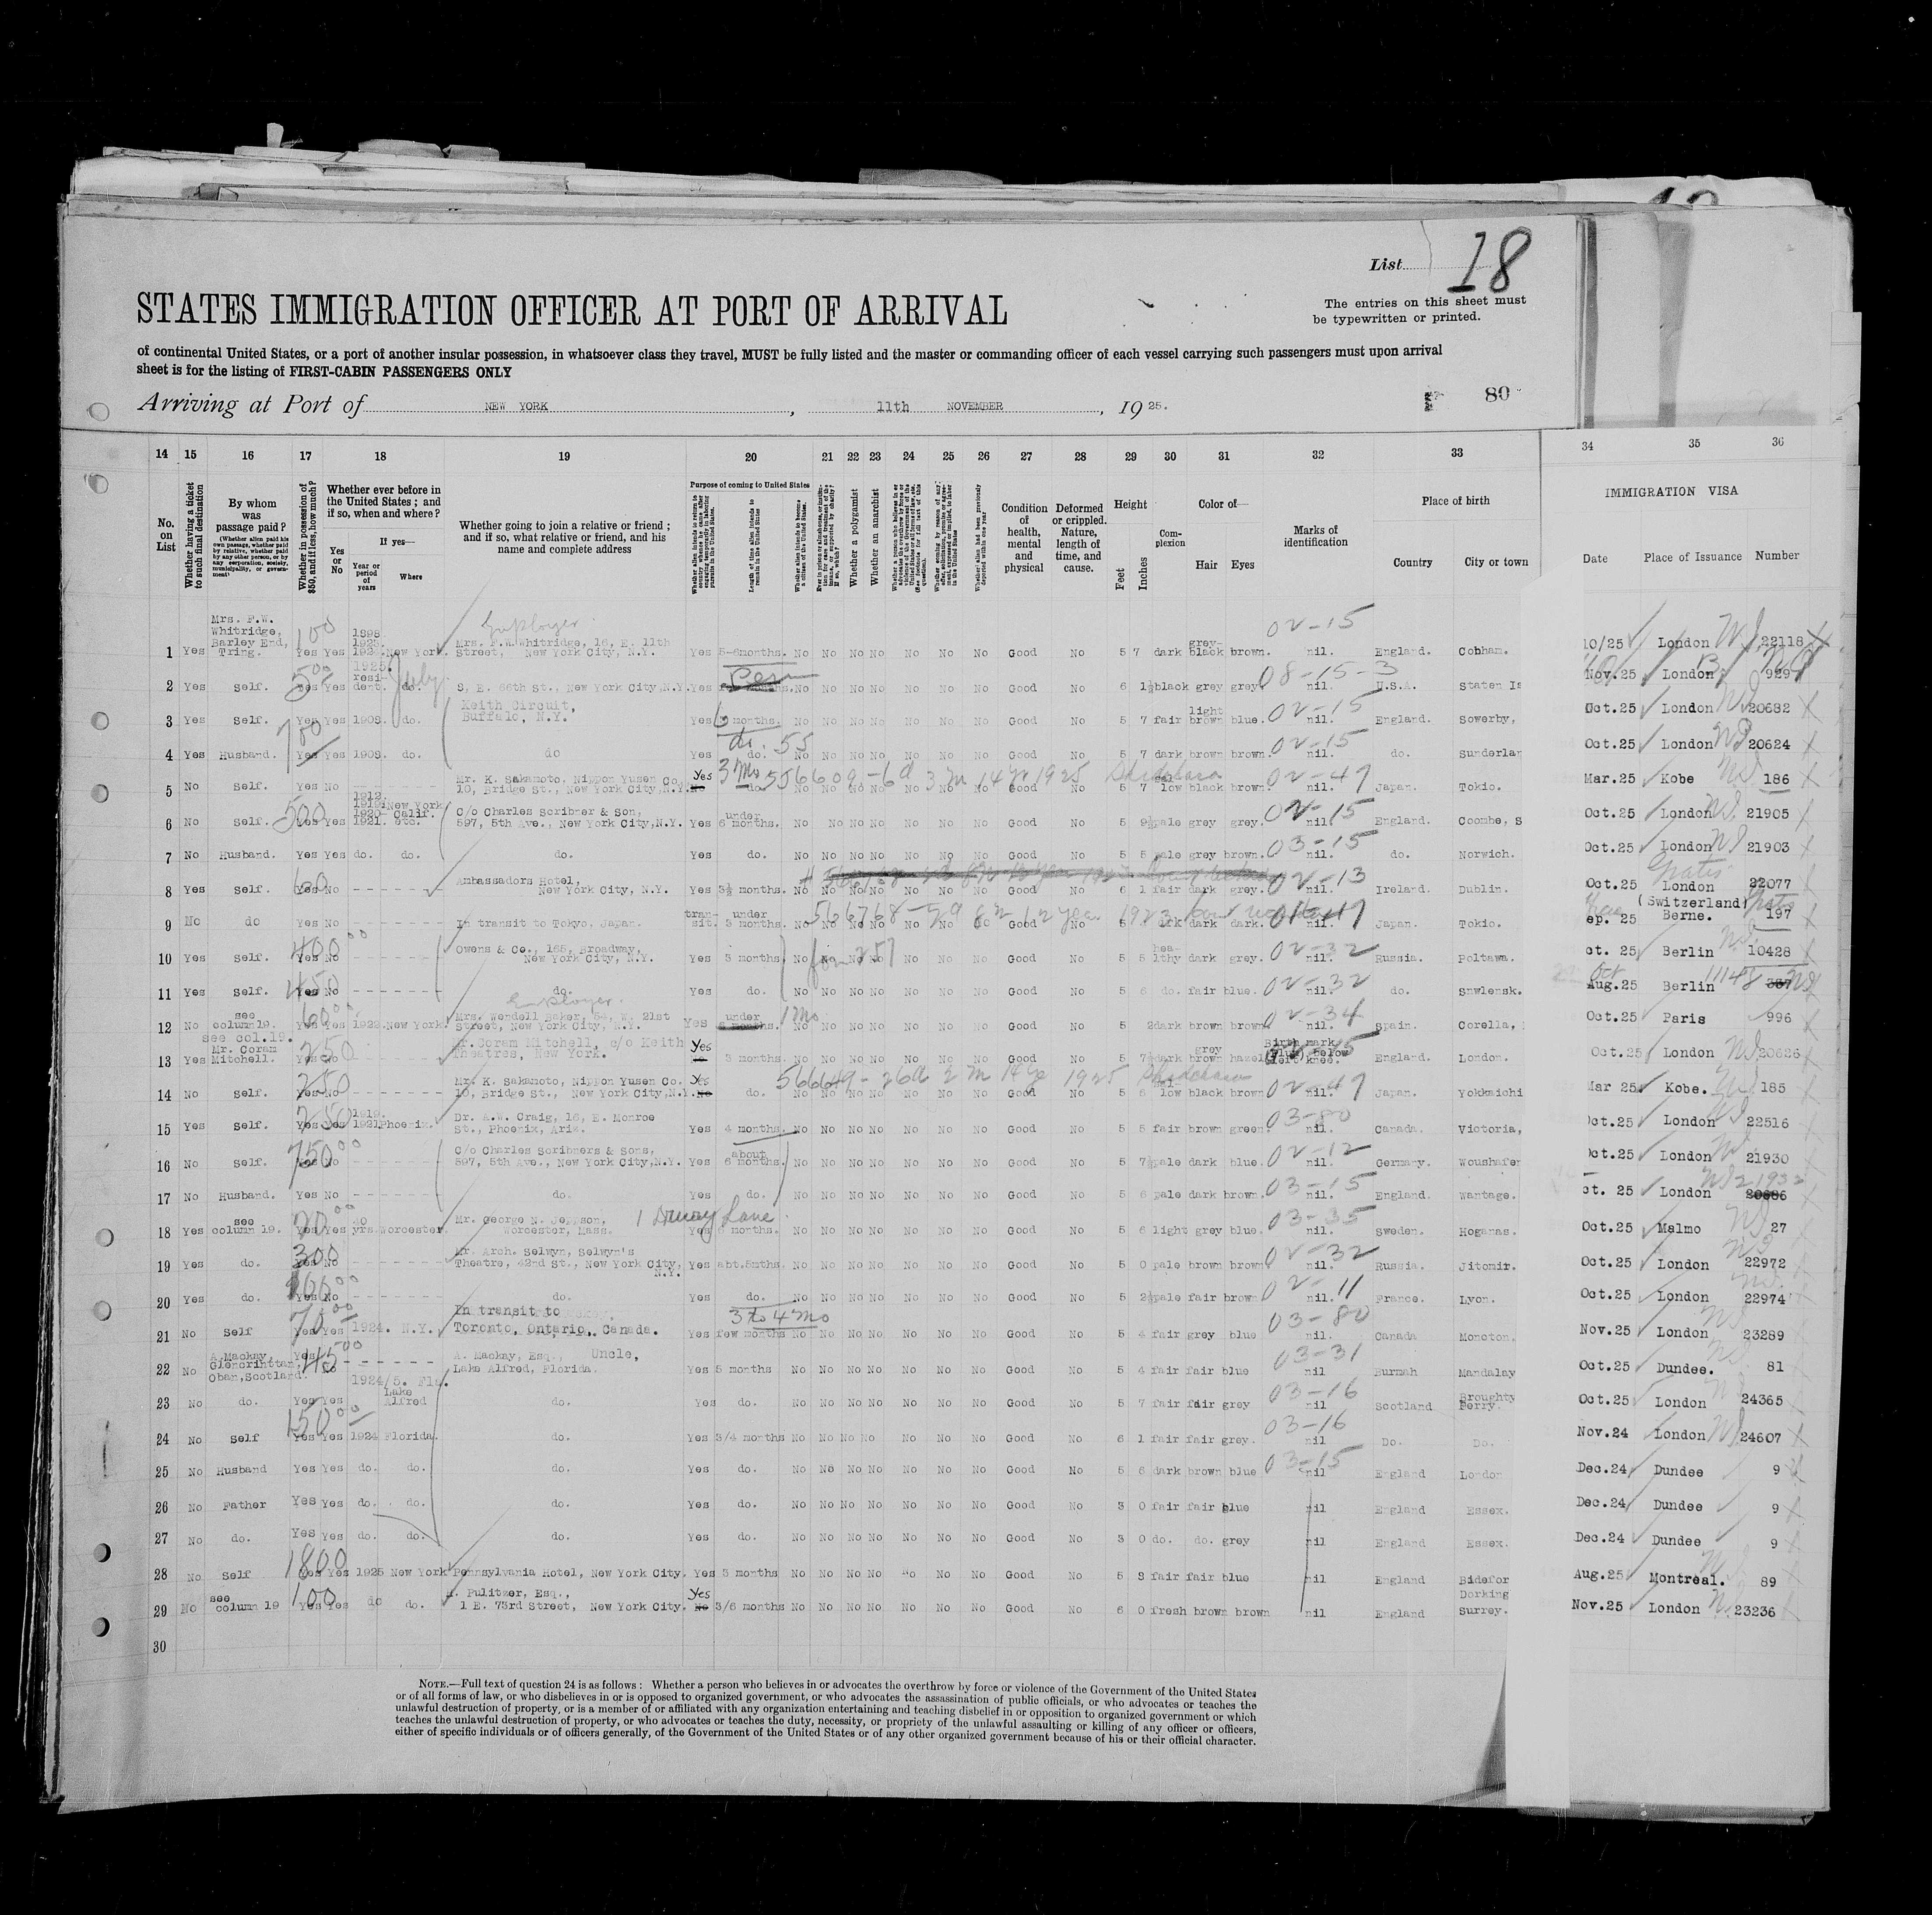 List 18
STATES IMMIGRATION OFFICER AT PORT OF ARRIVAL
The entries on this sheet must
be typewritten or printed.
of continental United States, or a port of another insular possession, in whatsoever class they travel, MUST be fully listed and the master or commanding officer of each vessel carrying such passengers must upon arrival
sheet is for the listing of FIRST-CABIN PASSENGERS ONLY
Arriving at Port of NEW YORK, 11th NOVEMBER, 19 25.
80
14 15 16 17 18 19 20 21 22 23 24 25 26 27 28 29 30 31 32 33 34 35 36
No. on List
Whether having a ticket to such final destination
By whom was passage paid?
(Whether alien paid his own passage, whether paid by relative, whether paid by any other person, or by any corporation, society, municipality, or government)
Whether in possession of $50, and if less, how much?
Whether ever before in the United States; and if so, when and where?
Yes or No
If yes—
Year or period of years
Where
Whether going to join a relative or friend; and if so, what relative or friend, and his name and complete address
Purpose of coming to United States
Length of time alien intends to remain in the United States
Whether alien intends to become a citizen of the United States
Whether a polygamist
Whether an anarchist
Condition of health, mental and physical
Deformed or crippled. Nature, length of time, and cause.
Height
Feet
Inches
Complexion
Color of—
Hair Eyes
Marks of identification
Place of birth
Country
City or town
IMMIGRATION VISA
Date Place of Issuance Number
1 Yes Mrs. F.W. Whitridge, Barley End, Tring. 100 Yes Yes 1898 1923 1924 New York. Employer Mrs. F.W. Whitridge, 16, E. 11th Street, New York City, N.Y. Yes 5-6months. No No No No No No No Good No 5 7 dark grey-black brown. nil. 02-15 England. Cobham. 10/25 London 22118
2 Yes Self. 500 Yes Yes 1925. resident. do. July S, E. 66th St., New York City, N.Y. Yes No No No No No No No Good No 6 1½ black grey grey. nil. 08-15-3 U.S.A. Staten Is Nov.25 London 929
3 Yes Self. Yes Yes 1908. do. Keith Circuit, Buffalo, N.Y. Yes 6 months. No No No No No No No Good No 5 7 fair light brown blue. nil. 02-15 England. Sowerby, Oct.25 London 20682
4 Yes Husband. 700 Yes Yes 1908. do. do Yes do. No No No No No No No Good No 5 7 dark brown brown. nil. 02-15 do. Sunderlan Oct.25 London 20624
5 No Self. Yes No Mr. K. Sakamoto, Nippon Yusen Co. 10, Bridge St., New York City, N.Y. Yes 3 Mo do. No No No No No No No Good No 5 7 low black brown. nil. 02-47 Japan. Tokio. Mar.25 Kobe 186
6 No Self. 500 Yes Yes 1912. 1919. 1920- 1921. New York Calif. etc. C/o Charles Scribner & Son, 597, 5th Ave., New York City, N.Y. Yes under 6 months. No No No No No No No Good No 5 9½ pale grey grey. nil. 02-15 England. Coombe, S Oct.25 London 21905
7 No Husband. Yes Yes do. do. do. Yes do. No No No No No No No Good No 5 5 pale grey brown. nil. 03-15 do. Norwich. Oct.25 London 21903
8 Yes Self. 600 Yes No Ambassadors Hotel, New York City, N.Y. Yes 3½ months. No No No No No No No Good No 6 1 fair dark grey. nil. 02-13 Ireland. Dublin. Oct.25 Gratis London 22077
9 No do Yes No In transit to Tokyo, Japan. transit. under 3 months. No No No No No No No Good No 5 dark dark. 01-47 Japan. Tokio. ep. 25 (Switzerland) Berne. 197
10 Yes Self. 400 00 Yes No Owens & Co., 165, Broadway, New York City, N.Y. Yes 3 months No No No No No No No Good No 5 5 healthy dark grey. nil. 02-32 Russia. Poltawa. ct. 25 Berlin 10428
11 Yes Self. 450 Yes No do. Yes do. No No No No No No No Good No 5 6 do. fair blue. nil. 02-32 do. Snwlensk. Oct Aug.25 Berlin 11148
12 No see column19. 60 00 Yes Yes 1922. New York. Employer. Mrs. Wendell Baker, 54, W. 21st Street, New York City, N.Y. Yes under 1 Mo No No No No No No No Good No 5 2 dark brown brown nil. 02-34 Spain. Corella, Oct.25 Paris 996
13 Yes see col.19. Mr. Coram Mitchell. 250 Yes No Mr.Coram Mitchell, c/o Keith Theatres, New York. Yes 3 months. No No No No No No No Good No 5 7½ dark grey brown hazel Birth mark below left knee. England. London. Oct.25 London 20626
14 No Self. 250 Yes No Mr. K. Sakamoto, Nippon Yusen Co. 10, Bridge St., New York City, N.Y. Yes do. No No No No No No No Good No 5 6 low black brown. nil. 02-47 Japan. Yokkaichi Mar 25 Kobe. 185
15 Yes Self. 250 Yes Yes 1919. 1921 Phoenix. Dr. A.W. Craig, 16, E. Monroe St., Phoenix, Ariz. Yes 4 months. No No No No No No No Good No 5 5 fair brown green. nil. 03-80 Canada. Victoria, Oct.25 London 22516
16 No Self. 750 00 Yes No C/o Charles Scribners & Sons, 597, 5th Ave., New York City, N.Y. Yes about 6 months. No No No No No No No Good No 5 7½ pale dark blue. nil. 02-12 Germany. Woushafen Oct.25 London 21930
17 No Husband. Yes No do. Yes do. No No No No No No No Good No 5 6 pale dark brown. nil. 03-15 England. Wantage. ct. 25 London 20686
18 Yes see column 19. 20 00 Yes Yes 20 yrs. Worcester. Mr. George N. Jeppson, Worcester, Mass. 1 Drury Lane. Yes 6 months. No No No No No No No Good No 5 6 light grey blue. nil. 03-35 Sweden. Hoganas. Oct.25 Malmo 27
19 Yes do. 300 Yes No Mr. Arch. Selwyn, Selwyn's Theatre, 42nd St., New York City, N.Y. Yes abt.5mths. No No No No No No No Good No 5 0 pale brown brown nil. 02-32 Russia. Jitomir. Oct.25 London 22972
20 Yes do. Yes No do. Yes do. No No No No No No No Good No 5 2½ pale fair brown nil. 02-11 France. Lyon. Oct.25 London 22974
21 No Self 70 00 Yes Yes 1924. N.Y. In transit to Toronto, Ontario, Canada. Yes few months 3 to 4 Mo No No No No No No No Good No 5 4 fair grey blue nil. 03-80 Canada Moncton. Nov.25 London 23289
22 No A.Mackay, Glencrihttan, Oban, Scotland. 45 00 Yes No A. Mackay, Esq., Uncle, Lake Alfred, Florida. Yes 5 months No No No No No No No Good No 5 4 fair fair blue nil 03-31 Burmah Mandalay Oct.25 Dundee. 81
23 No do. Yes Yes 1924/5. Fla. Lake Alfred do. Yes do. No No No No No No No Good No 5 7 fair fair grey nil 03-16 Scotland Broughty Ferry. Oct.25 London 24365
24 No Self 150 00 Yes Yes 1924 Florida. do. Yes 3/4 months No No No No No No No Good No 6 1 fair fair grey. nil 03-16 Do. Do. Nov.24 London 24607
25 No Husband Yes Yes do. do. do. Yes do. No No No No No No No Good No 5 6 dark brown blue nil 03-15 England London Dec.24 Dundee 9
26 No Father Yes Yes do. do. do. Yes do. No No No No No No No Good No 3 0 fair fair blue nil England Essex. Dec.24 Dundee 9
27 No do. Yes Yes do. do. do. Yes do. No No No No No No No Good No 3 0 do. do. grey nil England Essex. Dec.24 Dundee 9
28 No Self 1800 Yes Yes 1925 New York Pennsylvania Hotel, New York City. Yes 5 months No No No No No No No Good No 5 8 fair fair blue nil England Bidefor Aug.25 Montreal. 89
29 No see column 19 100 Yes Yes do do. R. Pulitzer, Esq., 1 E. 73rd Street, New York City. Yes 3/6 months No No No No No No No Good No 6 0 fresh brown brown nil England Dorking Surrey. Nov.25 London 23236
30
NOTE.—Full text of question 24 is as follows: Whether a person who believes in or advocates the overthrow by force or violence of the Government of the United States
or of all forms of law, or who disbelieves in or is opposed to organized government, or who advocates the assassination of public officials, or who advocates or teaches the
unlawful destruction of property, or is a member of or affiliated with any organization entertaining and teaching disbelief in or opposition to organized government or which
teaches the unlawful destruction of property, or who advocates or teaches the duty, necessity, or propriety of the unlawful assaulting or killing of any officer or officers,
either of specific individuals or of officers generally, of the Government of the United States or of any other organized government because of his or their official character.